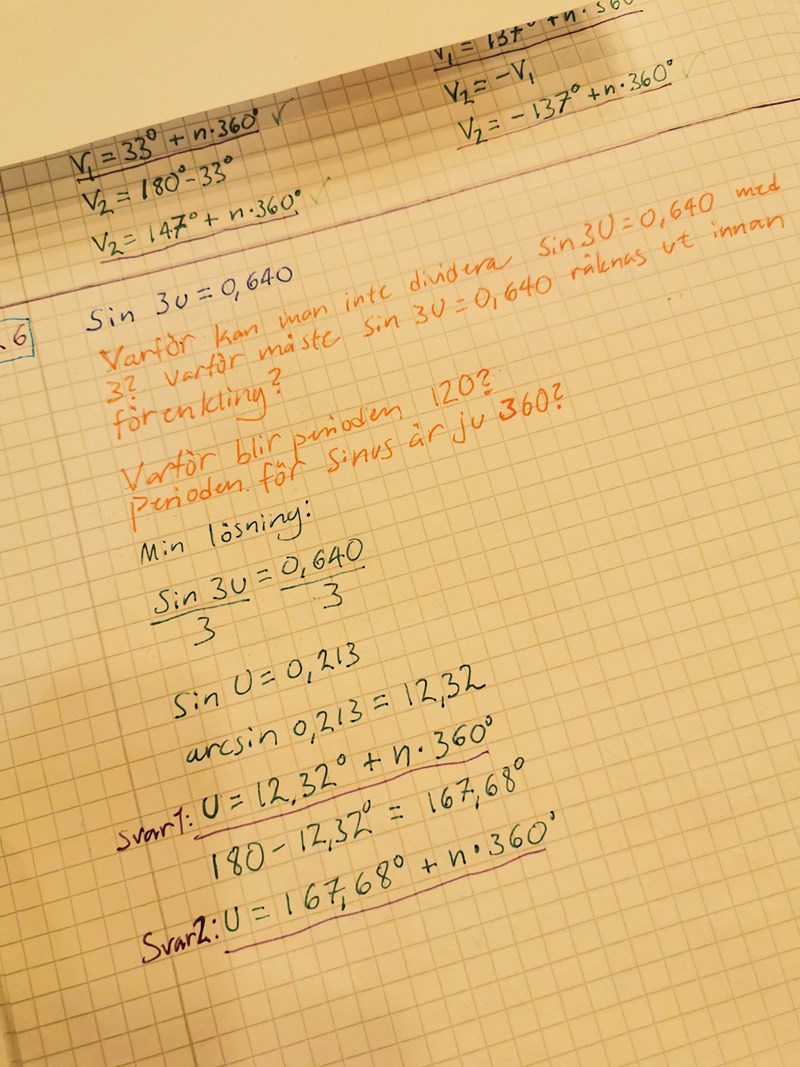 V₁ = 33° + n·360° ✓
V₂ = 180° - 33°
V₂ = 147° + n·360° ✓
V₁ = 137° + n·360°
V₂ = -V₁
V₂ = -137° + n·360° ✓
.6
Sin 3u = 0,640
Varför kan man inte dividera sin 3U = 0,640 med
3? Varför måste sin 3U = 0,640 räknas ut innan
förenkling?
Varför blir perioden 120?
Perioden för sinus är ju 360?
Min lösning:
Sin 3U/3 = 0,640/3
Sin U = 0,213
arcsin 0,213 = 12,32
Svar1: U = 12,32° + n·360°
180 - 12,32° = 167,68°
Svar2: U = 167,68° + n·360°